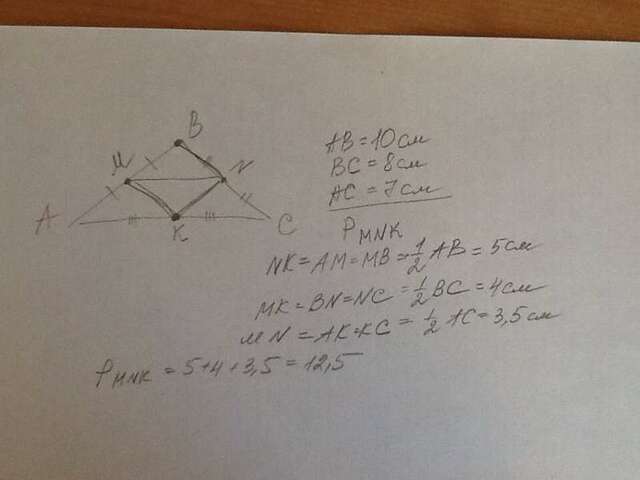 B
M
N
A
K
C
AB = 10 см
BC = 8 см
AC = 7 см
P MNK
NK = AM = MB = 1/2 AB = 5 см
MK = BN = NC = 1/2 BC = 4 см
MN = AK = KC = 1/2 AC = 3,5 см
P MNK = 5 + 4 + 3,5 = 12,5